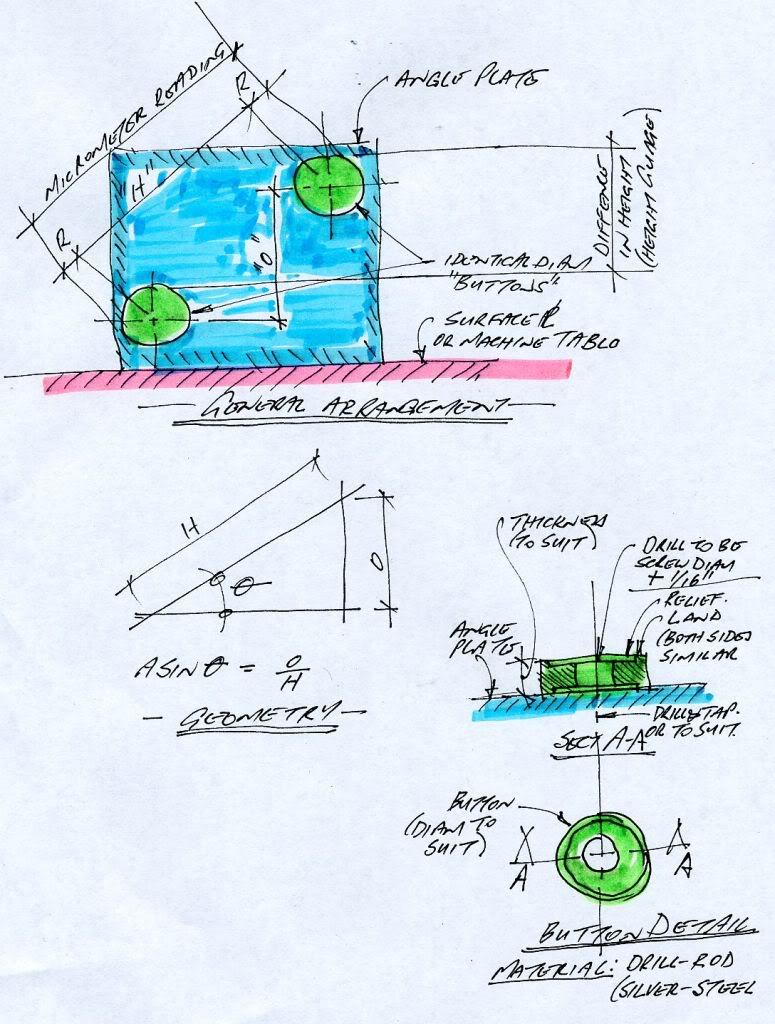 MICROMETER READING
R
R
"H"
ANGLE PLATE
"O"
DIFFERENCE
IN HEIGHT
(HEIGHT GUAGE)
IDENTICAL DIAM
"BUTTONS"
SURFACE PL
OR MACHINE TABLE
GENERAL ARRANGEMENT
H
θ
O
ASIN θ = O/H
GEOMETRY
THICKNESS
(TO SUIT)
DRILL TO BE
SCREW DIAM
+ 1/16"
RELIEF.
LAND
(BOTH SIDES
SIMILAR
ANGLE
PLATE
DRILL & TAP.
OR TO SUIT.
SECT A-A
BUTTON
(DIAM TO
SUIT)
A
A
BUTTON DETAIL
MATERIAL: DRILL-ROD
(SILVER-STEEL